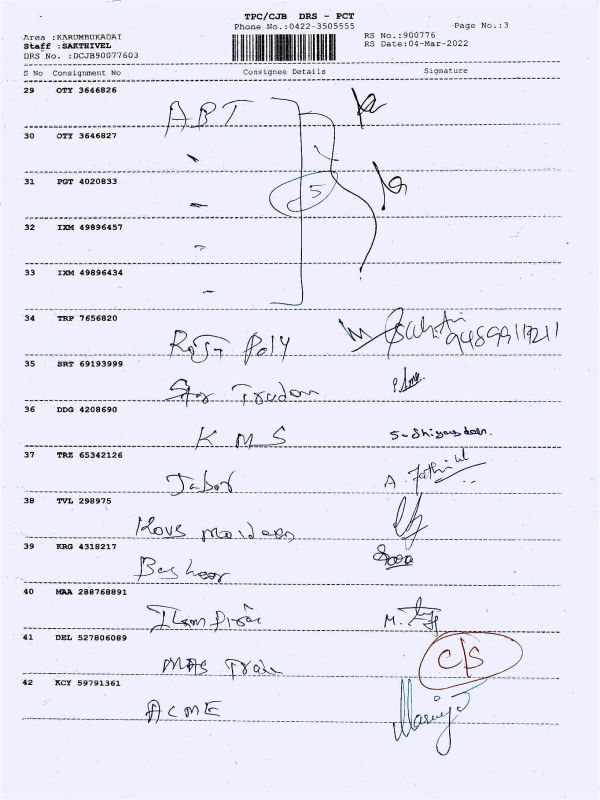 TPC/CJB DRS - PCT
Phone No.:0422-3505555
Page No.:3
Area :KARUMBUKADAI
Staff :SAKTHIVEL
DRS No. :DCJB90077603
RS No.:900776
RS Date:04-Mar-2022
S No Consignment No Consignee Details Signature
29 OTY 3646826
ABT
30 OTY 3646827
31 PGT 4020833
5
32 IXM 49896457
33 IXM 49896434
34 TRP 7656820
Poly
35 SRT 69193999
Star
36 DDG 4208690
KMS
37 TRZ 65342126
38 TVL 298975
39 KRG 4318217
Basheer
40 MAA 288768891
41 DEL 527806089
C/S
42 KCY 59791361
ACME